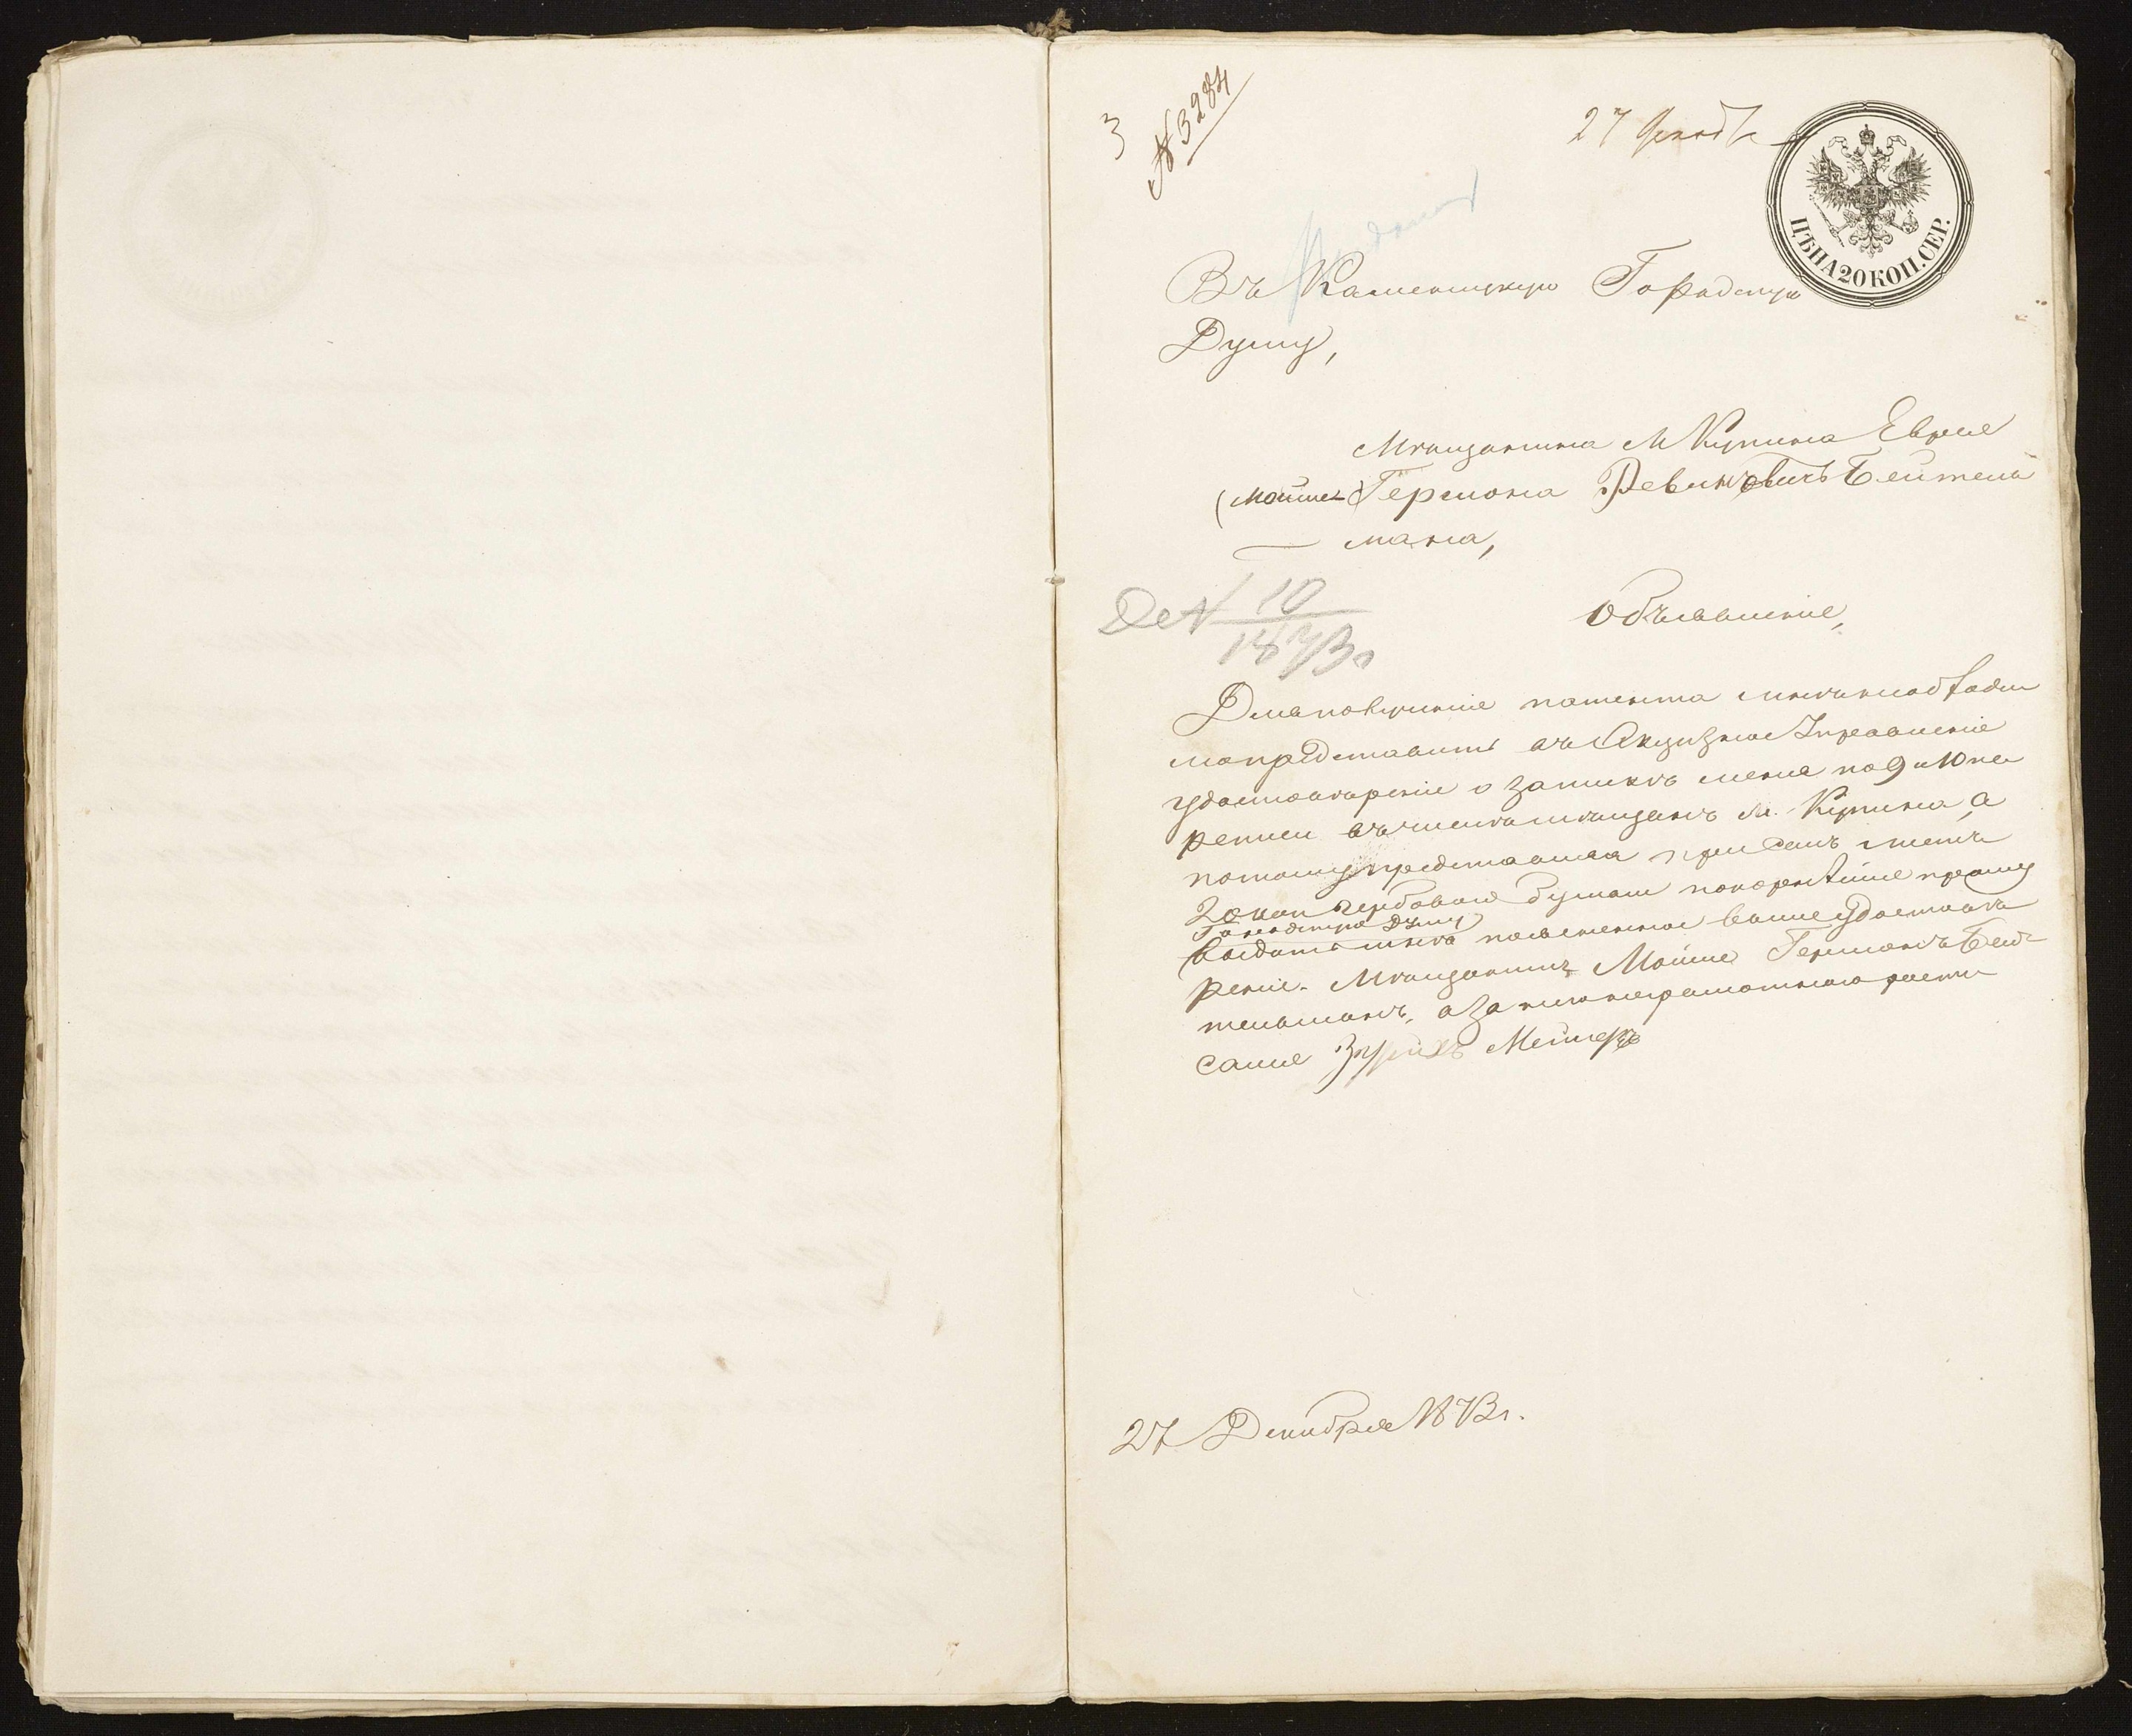 3
№ 3284
27 Декаб
ЦѢНА 20 КОП. СЕР.
Въ Каменецкую Городскую
Думу,
Мѣщанина М Купина Еврея
(Мойше) Германа Левиковичъ Бейтель
мана,
Де № 10
1873 г
Объявленіе,
Для полученіе патента мнѣ надобно
представить въ Акцизное Управленіе
удостовѣреніе о запискѣ меня по 9 и 10 ре
въ мѣщанъ м. Купина, а
потому представляя при семъ листъ
20 коп гербовой бумаги покорнѣйше прошу
Городскую Думу
выдать мнѣ письменное удостовѣ
реніе. Мѣщанинъ Мойше Германъ Бей-
тельманъ, а за него неграмотнаго роспи
сался Мейлеръ
27 Декабря 1873 г.